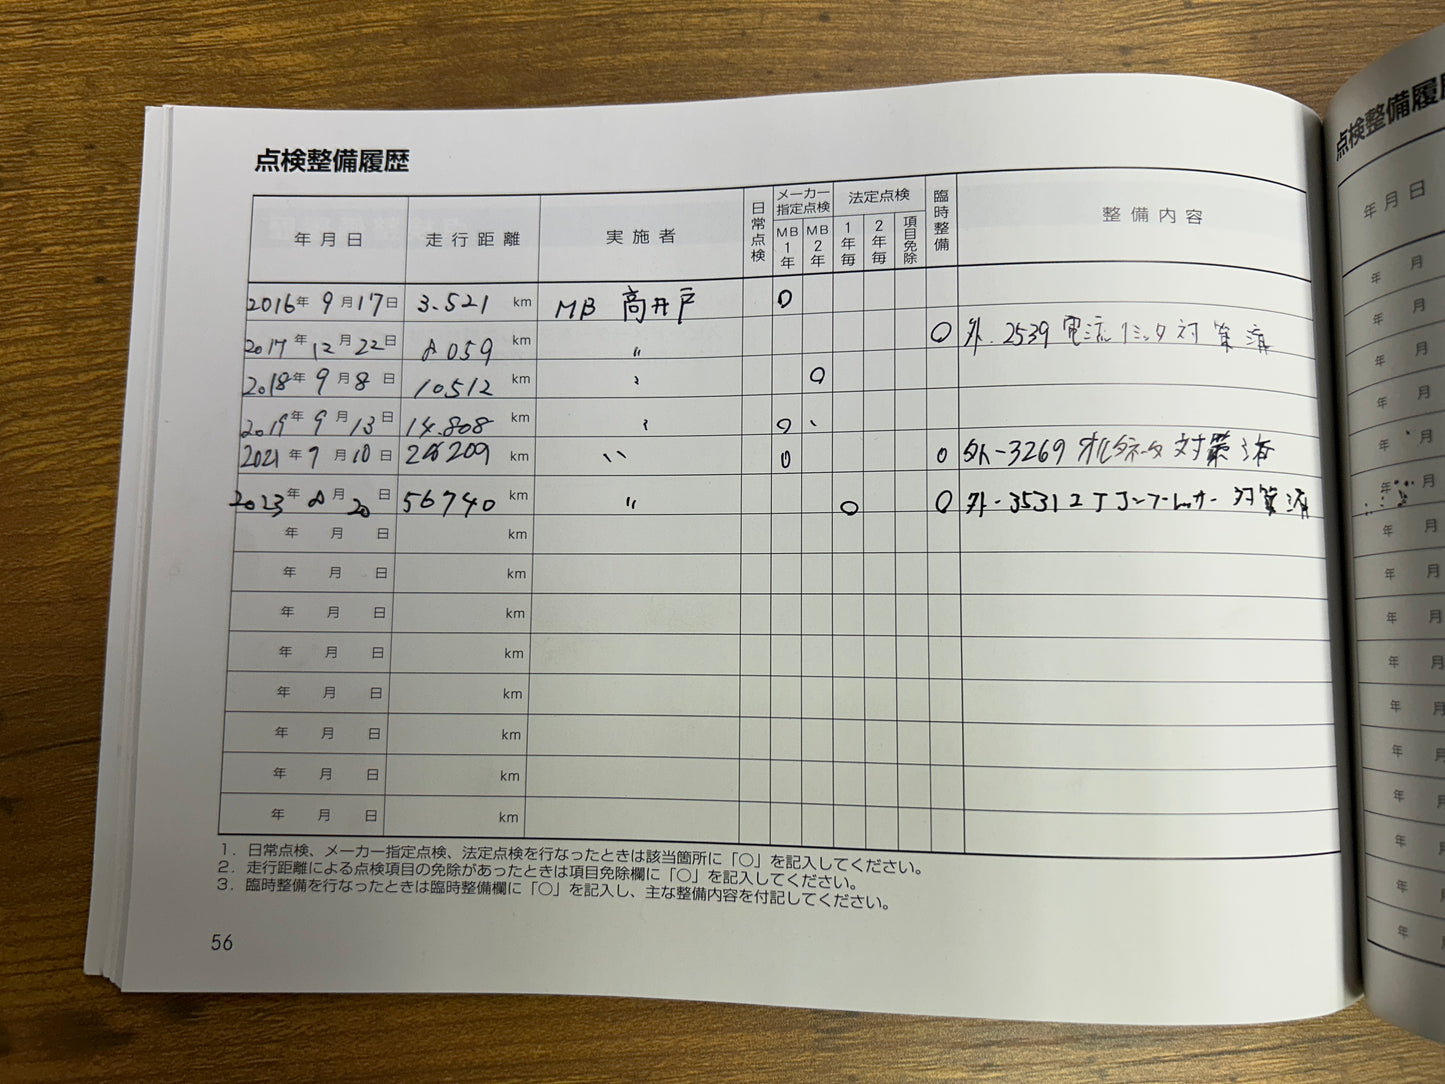 点検整備履歴
年月日 走行距離 実施者 日常点検 メーカー指定点検 MB1年 MB2年 法定点検 1年毎 2年毎 項目免除 臨時整備 整備内容
2016年 9月17日 3.521 km MB 高井戸 ○
2017年 12月22日 8059 km 〃 ○ 外.2539 電流リミッタ対策済
2018年 9月8日 10512 km 〃 ○
2019年 9月13日 14.808 km 〃 ○
2021年 7月10日 209 km 〃 ○ ○ 外-3269 オルタネータ対策済
2023年 8月20日 56740 km 〃 ○ ○ 外-3531 対策済
年 月 日 km
年 月 日 km
年 月 日 km
年 月 日 km
年 月 日 km
年 月 日 km
年 月 日 km
年 月 日 km
1．日常点検、メーカー指定点検、法定点検を行なったときは該当箇所に「○」を記入してください。
2．走行距離による点検項目の免除があったときは項目免除欄に「○」を記入してください。
3．臨時整備を行なったときは臨時整備欄に「○」を記入し、主な整備内容を付記してください。
56
点検整備履
年月日
年 月
年 月
年 月
年 月
年 月
年 月
年 月
年 月
年 月
年 月
年 月
年 月
年 月
年 月
年 月
年 月